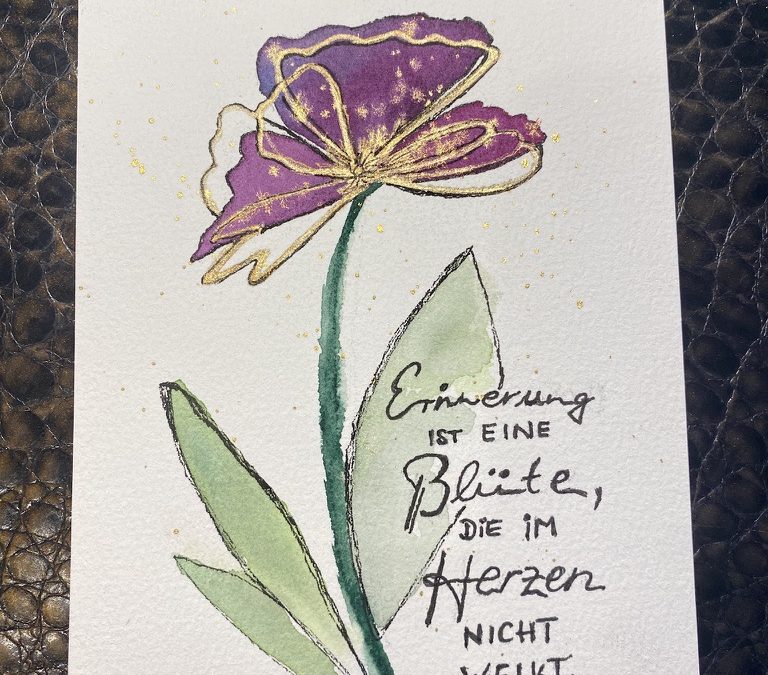 Erinnerung
IST EINE
Blüte,
DIE IM
Herzen
NICHT
WELKT.